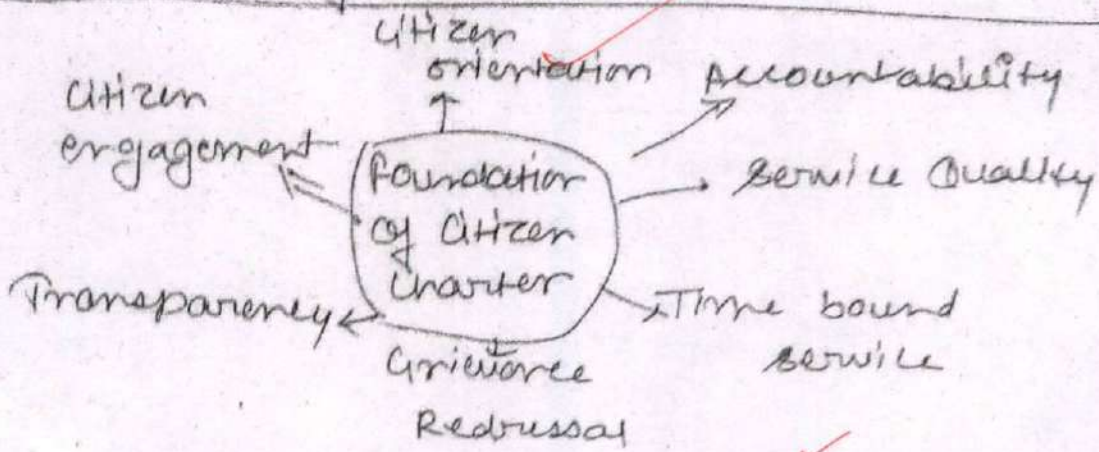 Citizen
orientation
Accountability
Citizen
engagement
Foundation
of Citizen
Charter
Service Quality
Transparency
Time bound
service
Grievance
Redressal